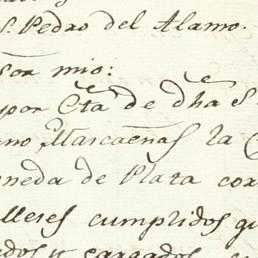 S. Pedro del Alamo.
Sor mio:
por Cta de dha S
ano, Mascareñas la C
neda de Plata cor
lleres cumplidos qu
dos y cargados